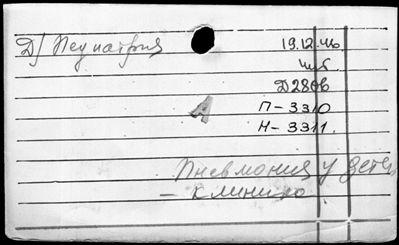 Д) Педиатрия 19.12.46
Д2806
А
П-3310
Н-3311.
Пневмония у детей
- клиника